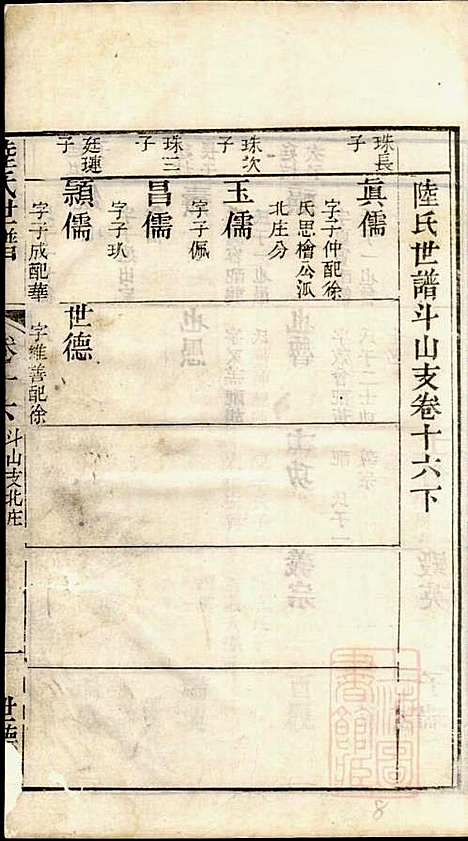 陸氏世譜斗山支卷十六下
珠長子
眞儒
字子仲配徐
氏思檜公派
北庄分
珠次子
玉儒
字子佩
珠三子
昌儒
字子玖
廷璉子
顯儒
字子成配華
世德
字維善配徐
陸氏世譜
卷十六
斗山支北庄
一
世德
8